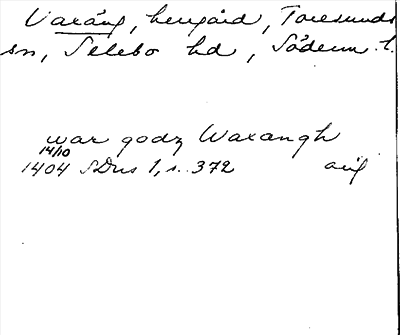 Vaxäng, herrgård, Toresunds
sn, Selebo hd, Söderm. l.
war godz Waxangh
14/10
1404 SDns 1, s. 372 avig